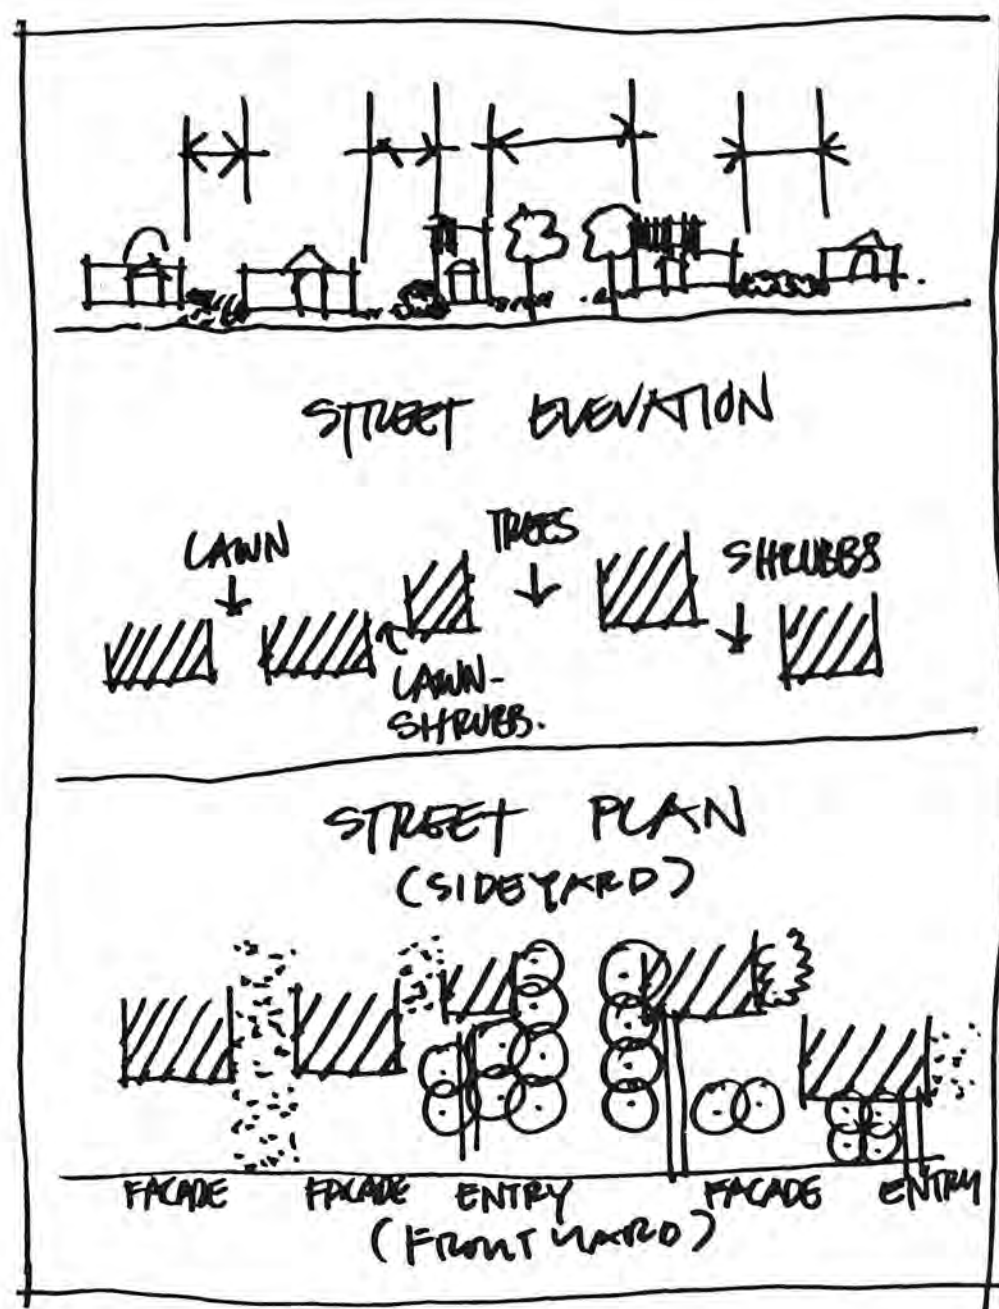 STREET ELEVATION
LAWN
TREES
SHRUBBS
LAWN-
SHRUBB.
STREET PLAN
(SIDEYARD)
FACADE FACADE ENTRY FACADE ENTRY
(FRONT YARD)